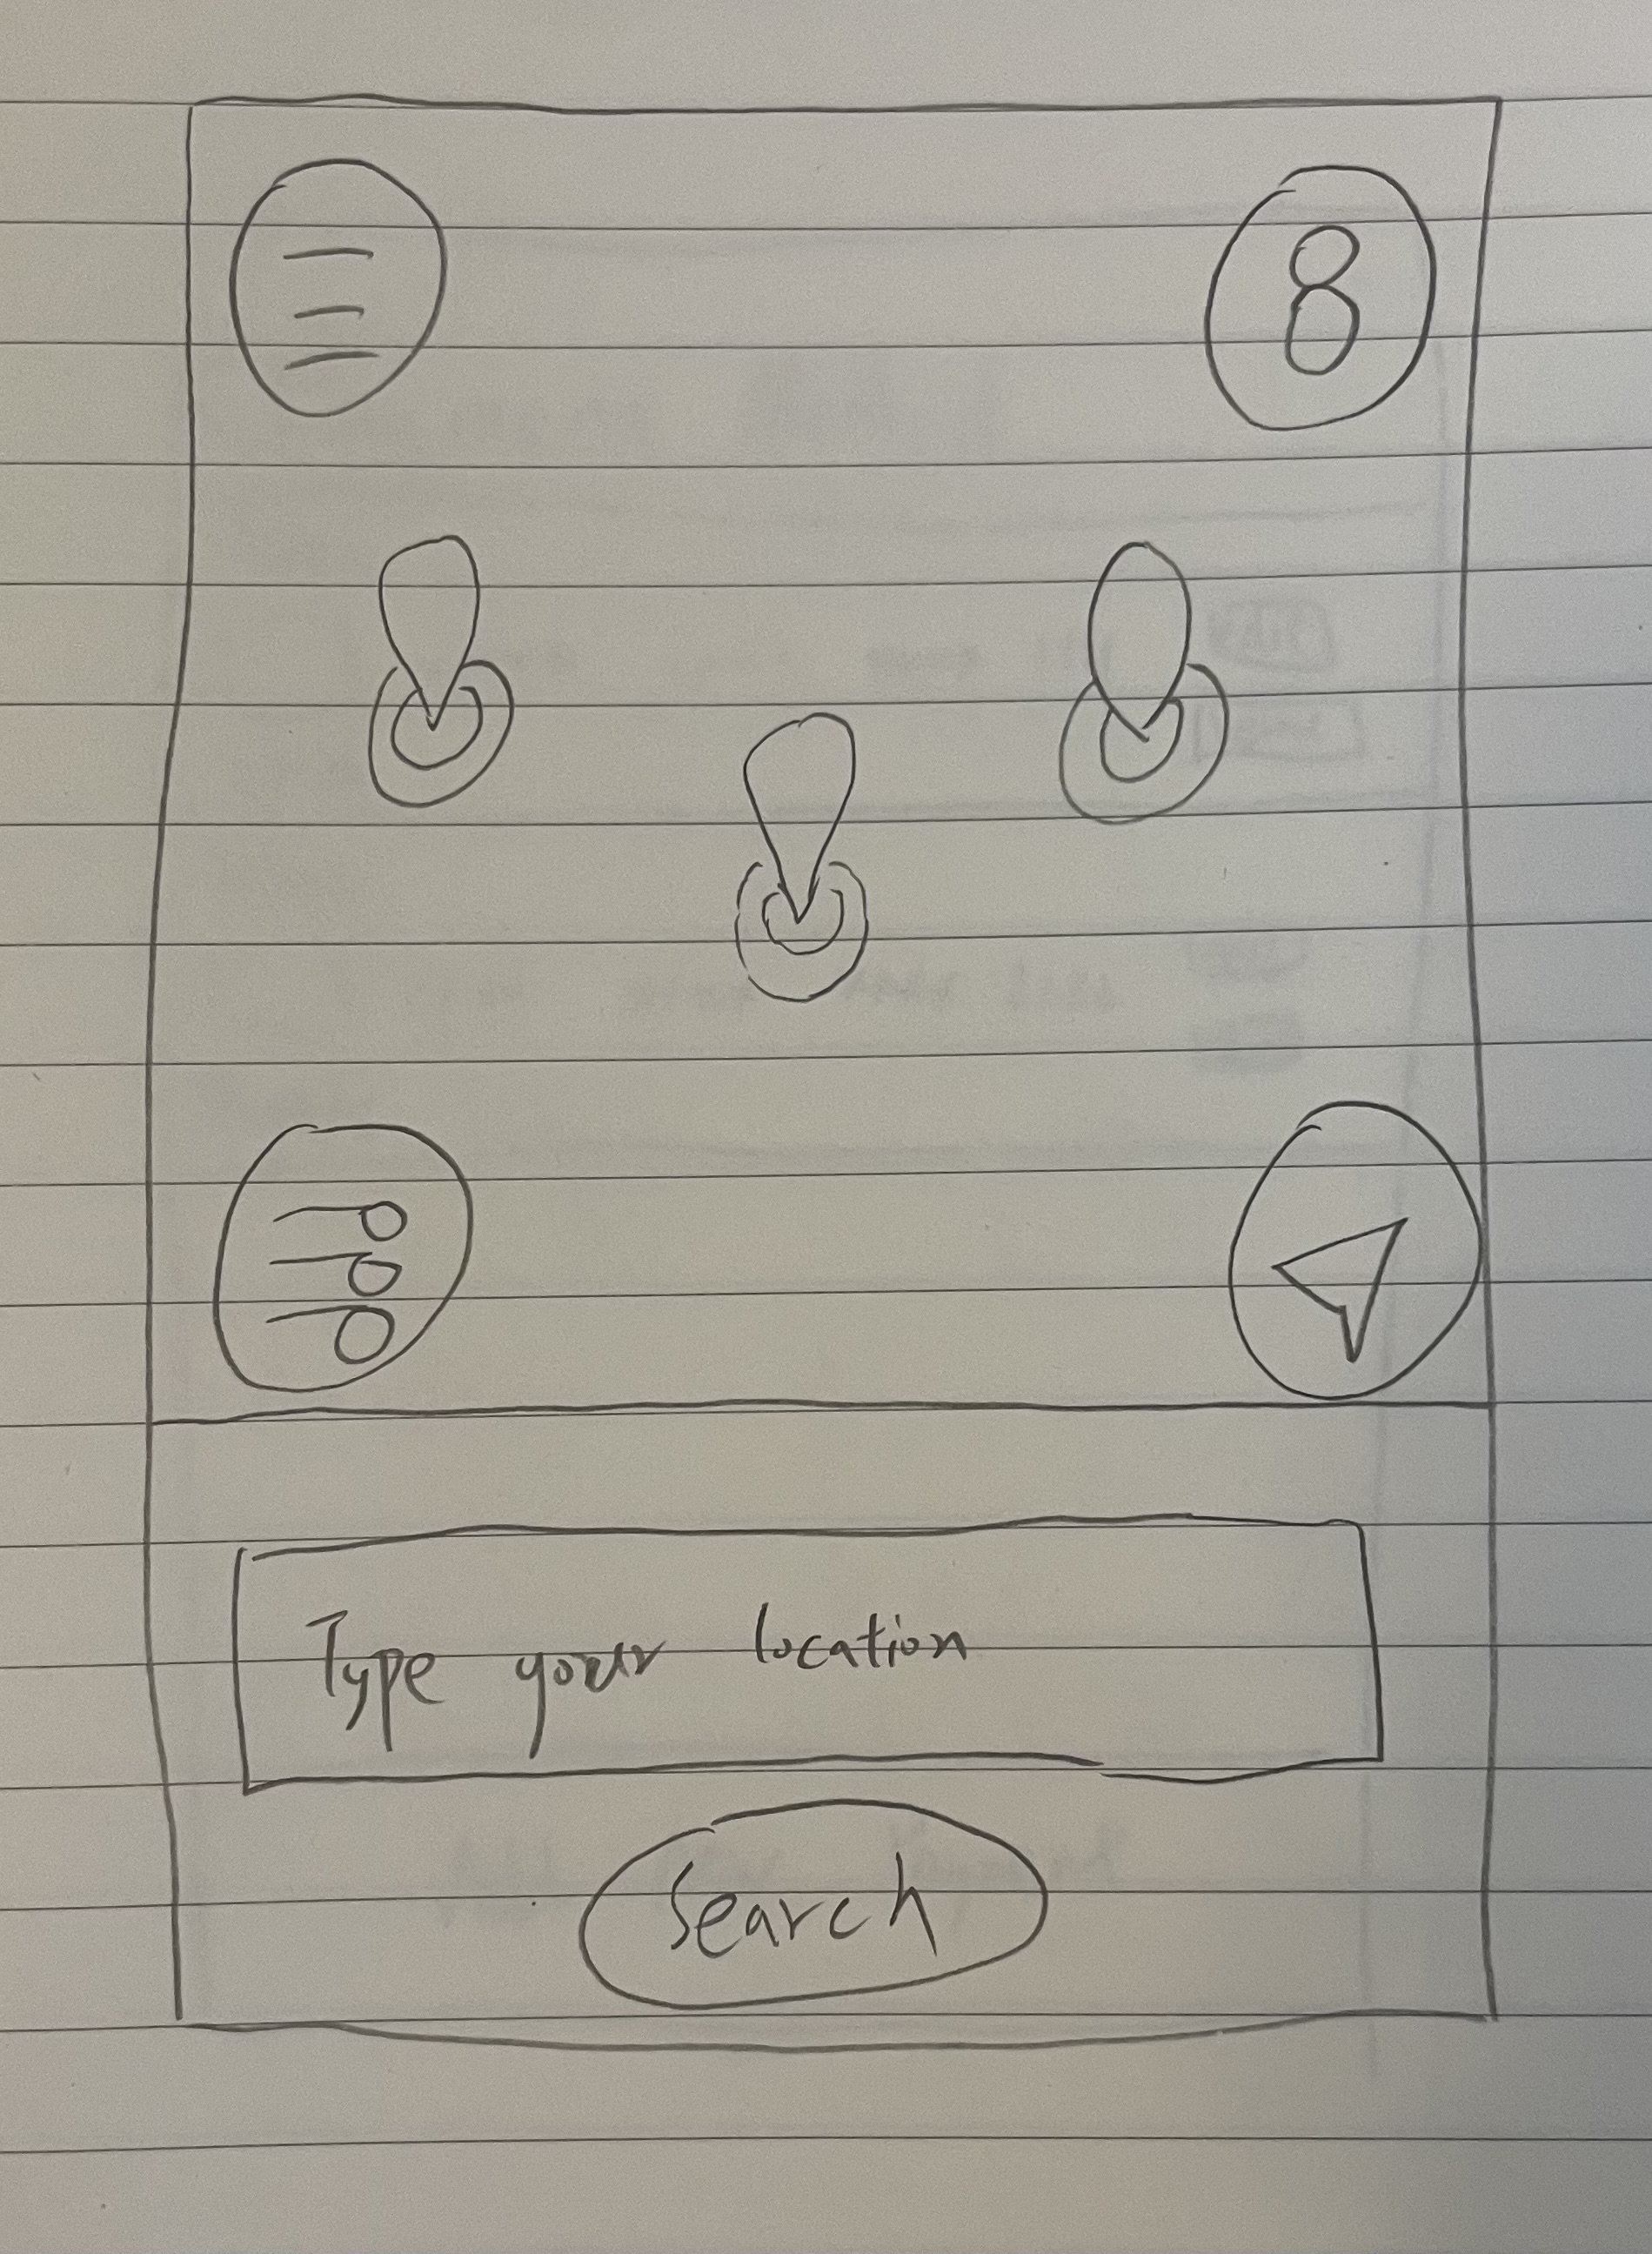 Type your location
Search